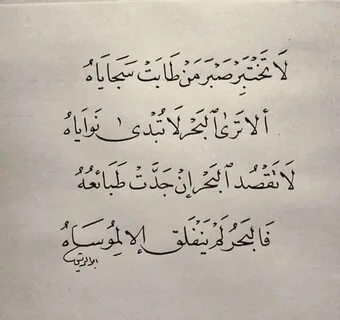 لَا تَخْتَبِرْ صَبْرَ مَنْ طَابَتْ سَجَايَاهُ
ألا تَرَىٰ البَحْرَ لَا تُبْدَىٰ نَوَايَاهُ
لَا تَقْصُدِ البَحْرَ إنْ جَدَّتْ طَبَائعُهُ
فَالبَحْرُ لَمْ يَنْفَلِقْ إلا لِمُوسَاهُ